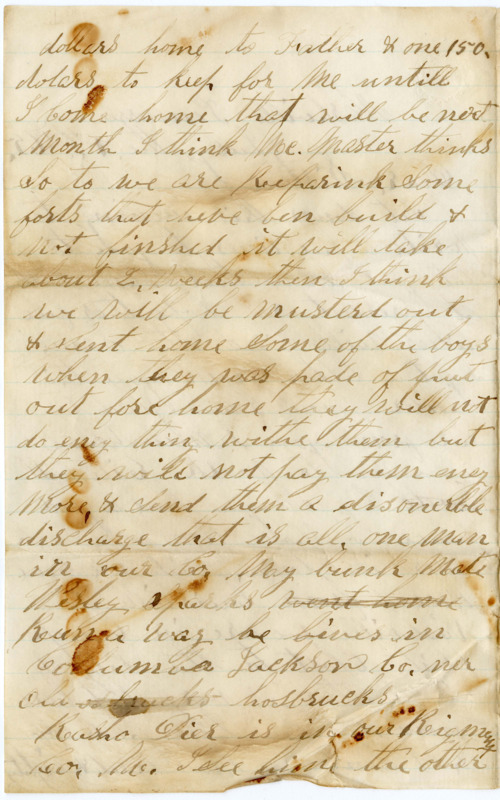 dollars home to Father & one 150.
dolars to keep for Me untill
I Come home that will be next
Month I think Mc. Master thinks
So to we are Reparink Some
forts that heve ben build &
not finshed it will take
about 2, weeks then I think
we will be musterd out
& sent home Some, of the boys
when they was pade of put
out fore home they will not
do eny thing withe them but
they will not pay them eney
More, & Send them a disonerble
discharge that is all, one Man
in our Co, May bunk Mate
Wesley went home
Runna way he lives in
Columba Jackson Co. ner
old hosbrucks
is in our Rigment
Co. I See him the other